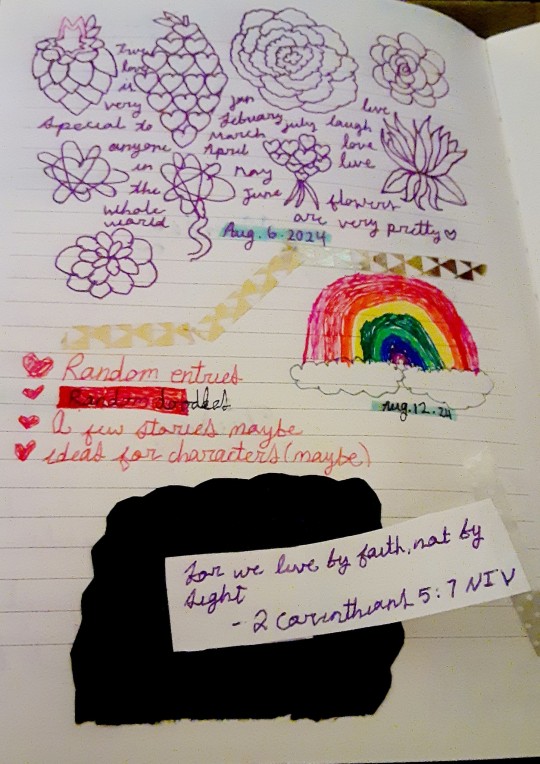 True
love
is
very
special to
anyone
in
the
whole
world
Jan
February
March
April
May
June
july
laugh
love
live
live
flowers
are very pretty
Aug. 6. 2024
Aug. 12. 24
Random entries
Random doodles
A few stories maybe
ideas for characters (maybe)
For we live by faith, not by
sight
- 2 Corinthians 5:7 NIV